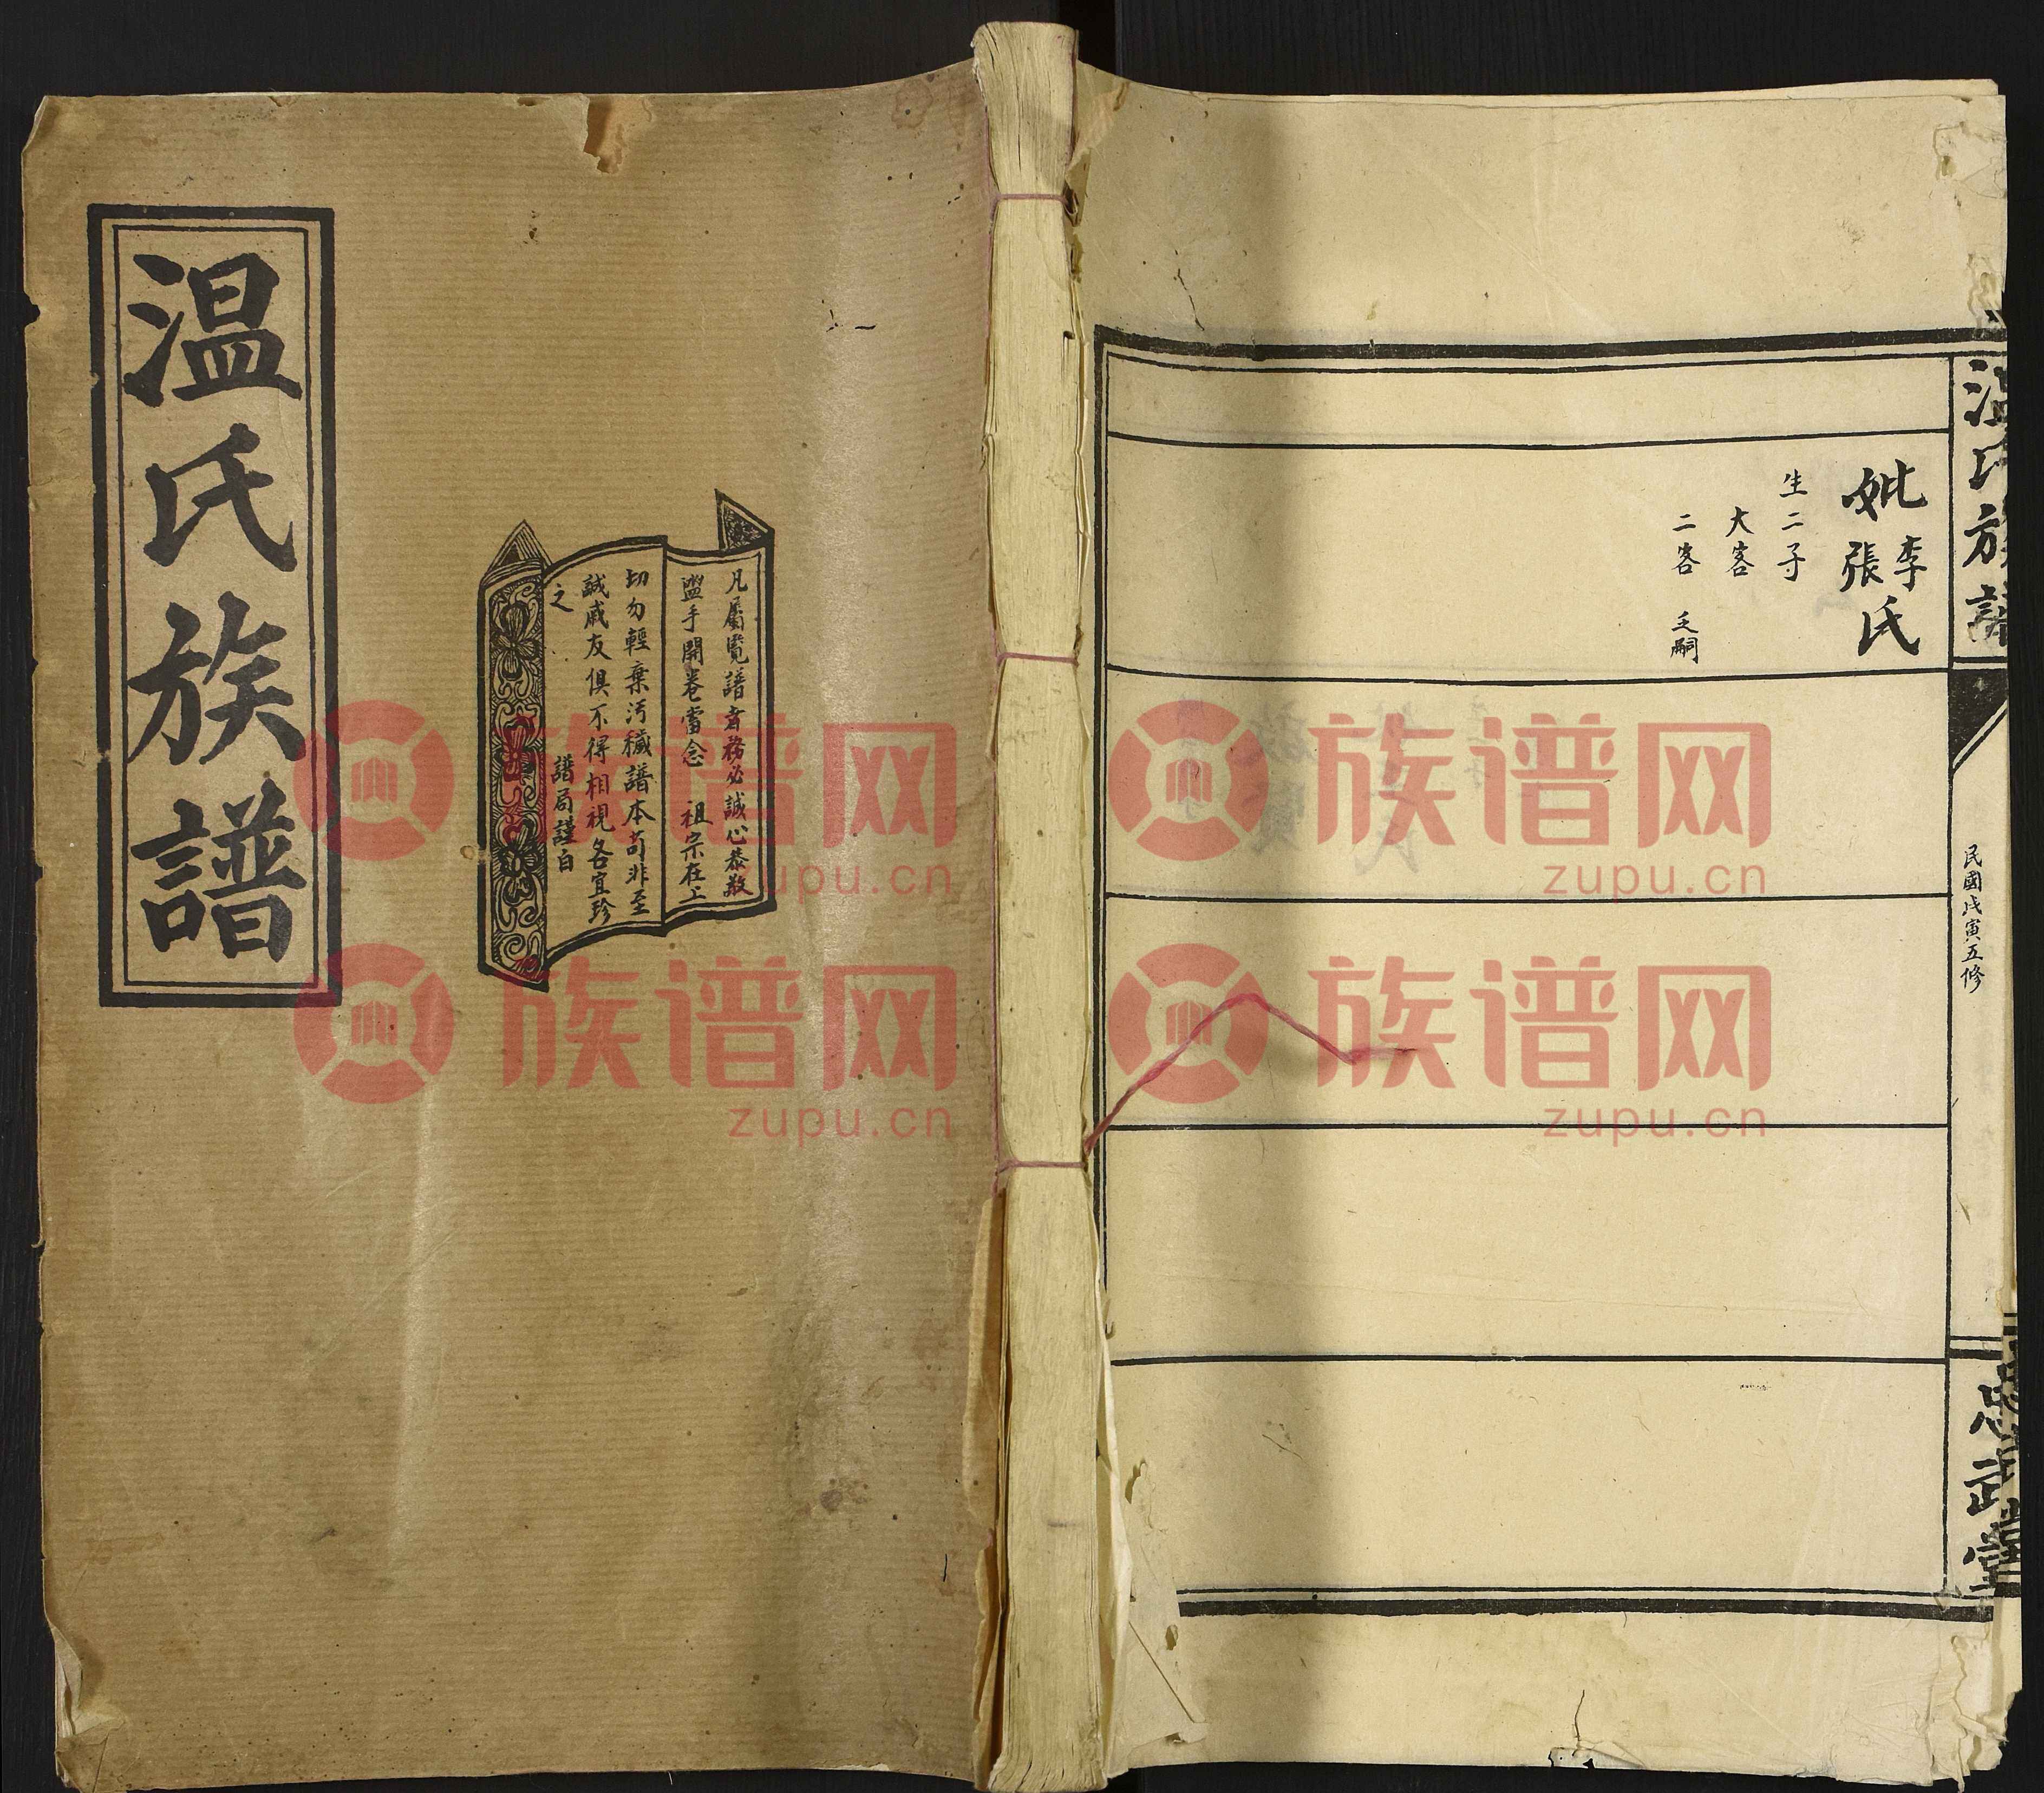 温氏族譜
凡屬覧譜者務必誠心恭敬
盥手開巻當念 祖宗在上
切勿輕棄汚穢譜本苟非至
誠戚友俱不得相視各宜珍
之
譜局謹白
温氏族譜
民國戊寅五修
忠武堂
妣李張氏
生二子
大客
二客 乏嗣
族谱网
zupu.cn
族谱网
zupu.cn
族谱网
zupu.cn
族谱网
zupu.cn